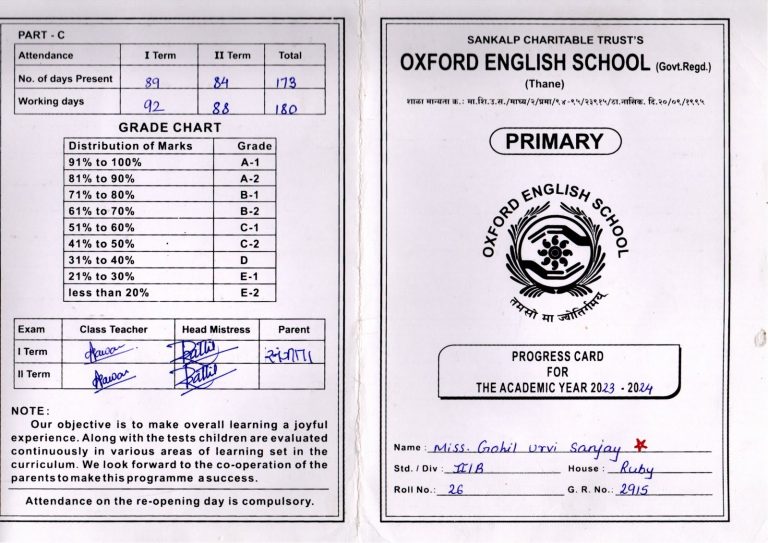 PART - C
Attendance I Term II Term Total
No. of days Present 89 84 173
Working days 92 88 180
GRADE CHART
Distribution of Marks Grade
91% to 100% A-1
81% to 90% A-2
71% to 80% B-1
61% to 70% B-2
51% to 60% C-1
41% to 50% C-2
31% to 40% D
21% to 30% E-1
less than 20% E-2
Exam Class Teacher Head Mistress Parent
I Term
II Term
NOTE:
Our objective is to make overall learning a joyful
experience. Along with the tests children are evaluated
continuously in various areas of learning set in the
curriculum. We look forward to the co-operation of the
parents to make this programme a success.
Attendance on the re-opening day is compulsory.
SANKALP CHARITABLE TRUST'S
OXFORD ENGLISH SCHOOL (Govt.Regd.)
(Thane)
शाळा मान्यता क्र.: मा.शि.उ.स./माध्य/२/प्रमा/९४-९५/२३९१५/ठा.नासिक. दि.२०/०९/१९९५
PRIMARY
OXFORD ENGLISH SCHOOL
तमसो मा ज्योतिर्गमय
PROGRESS CARD
FOR
THE ACADEMIC YEAR 2023 - 2024
Name : Miss. Gohil Urvi Sanjay
Std. / Div : III/B House : Ruby
Roll No.: 26 G. R. No.: 2915